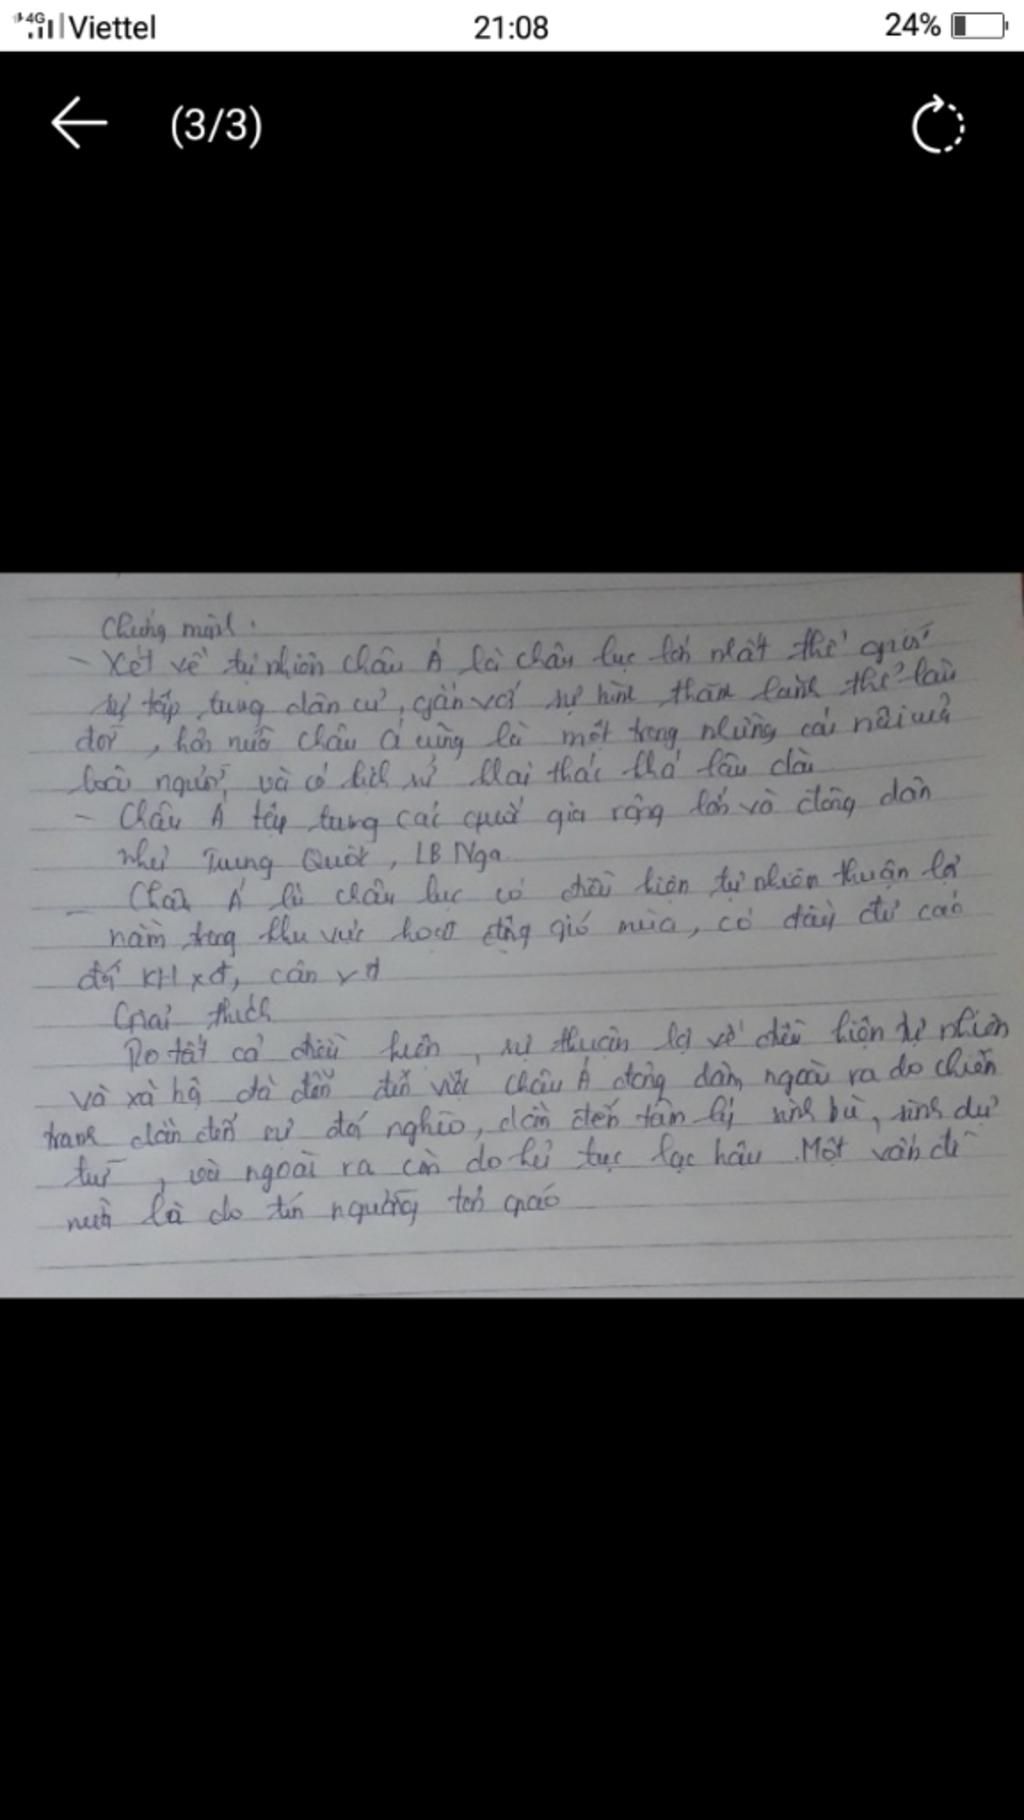 4G Viettel 21:08 24%
(3/3)
Chứng minh.
- Xét về tự nhiên châu Á là châu lục lớn nhất thế giới
sự tập trung dân cư, gắn với sự hình thành lãnh thổ lâu
đời, hơn nữa châu Á cũng là một trong những cái nôi của
loài người, và có lịch sử khai thác khá lâu dài
- Châu Á tập trung các quốc gia rộng lớn và đông dân
như Trung Quốc, LB Nga
- Châu Á là châu lục có điều kiện tự nhiên thuận lợi
nằm trong khu vực hoạt động gió mùa, có đầy đủ các
đới KH xđ, cận xđ
Giải thích
Do tất cả điều kiện, sự thuận lợi về điều kiện tự nhiên
và xã hội đã dẫn đến việc châu Á đông dân, ngoài ra do chiến
tranh dẫn đến sự đói nghèo, dẫn đến tâm lý sinh bù, sinh dự
trữ, và ngoài ra còn do hủ tục lạc hậu. Một vấn đề
nữa là do tín ngưỡng tôn giáo